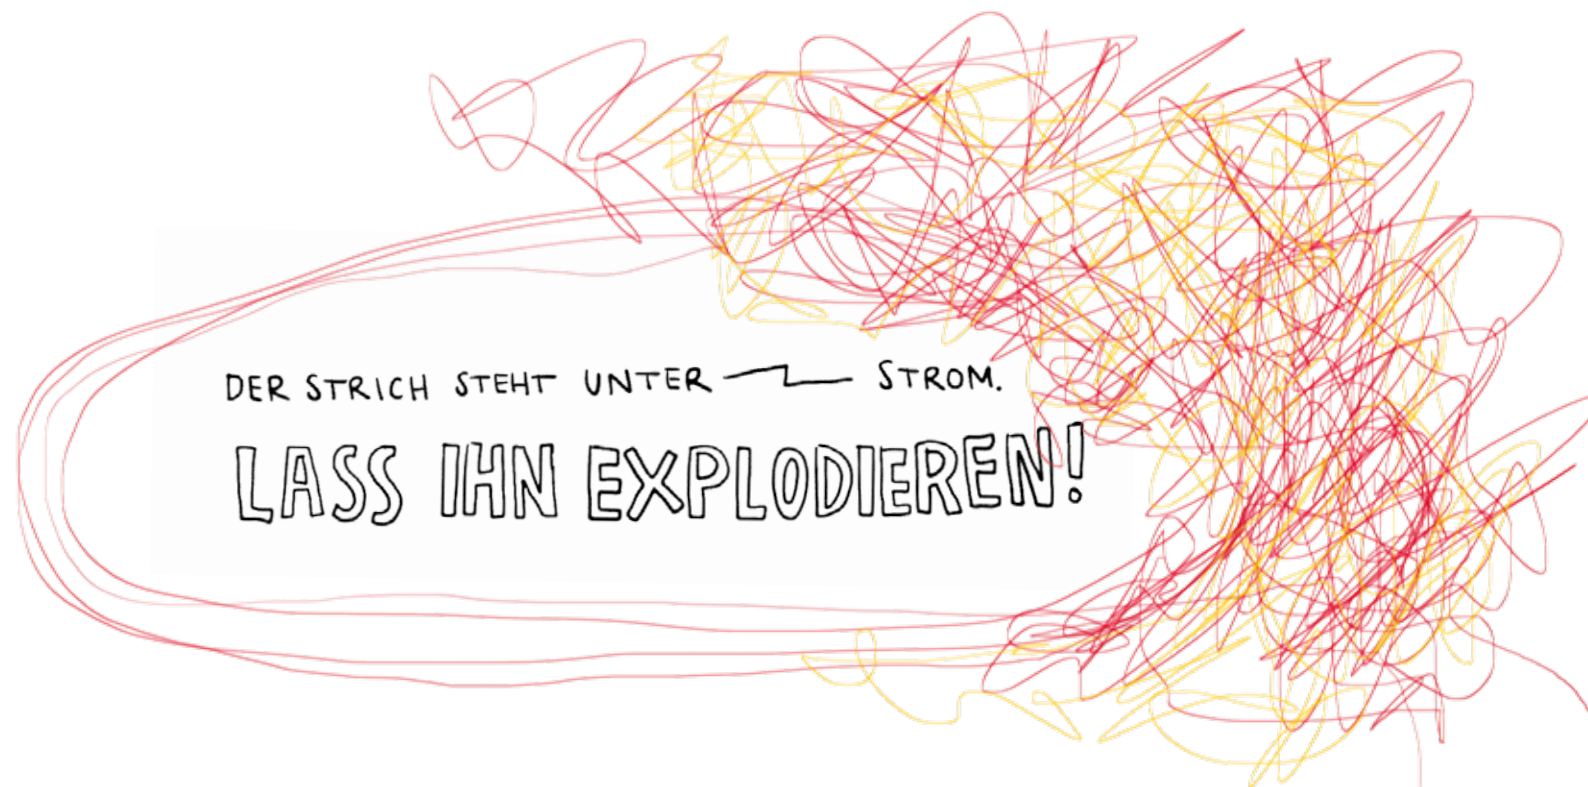 DER STRICH STEHT UNTER STROM.
LASS IHN EXPLODIEREN!